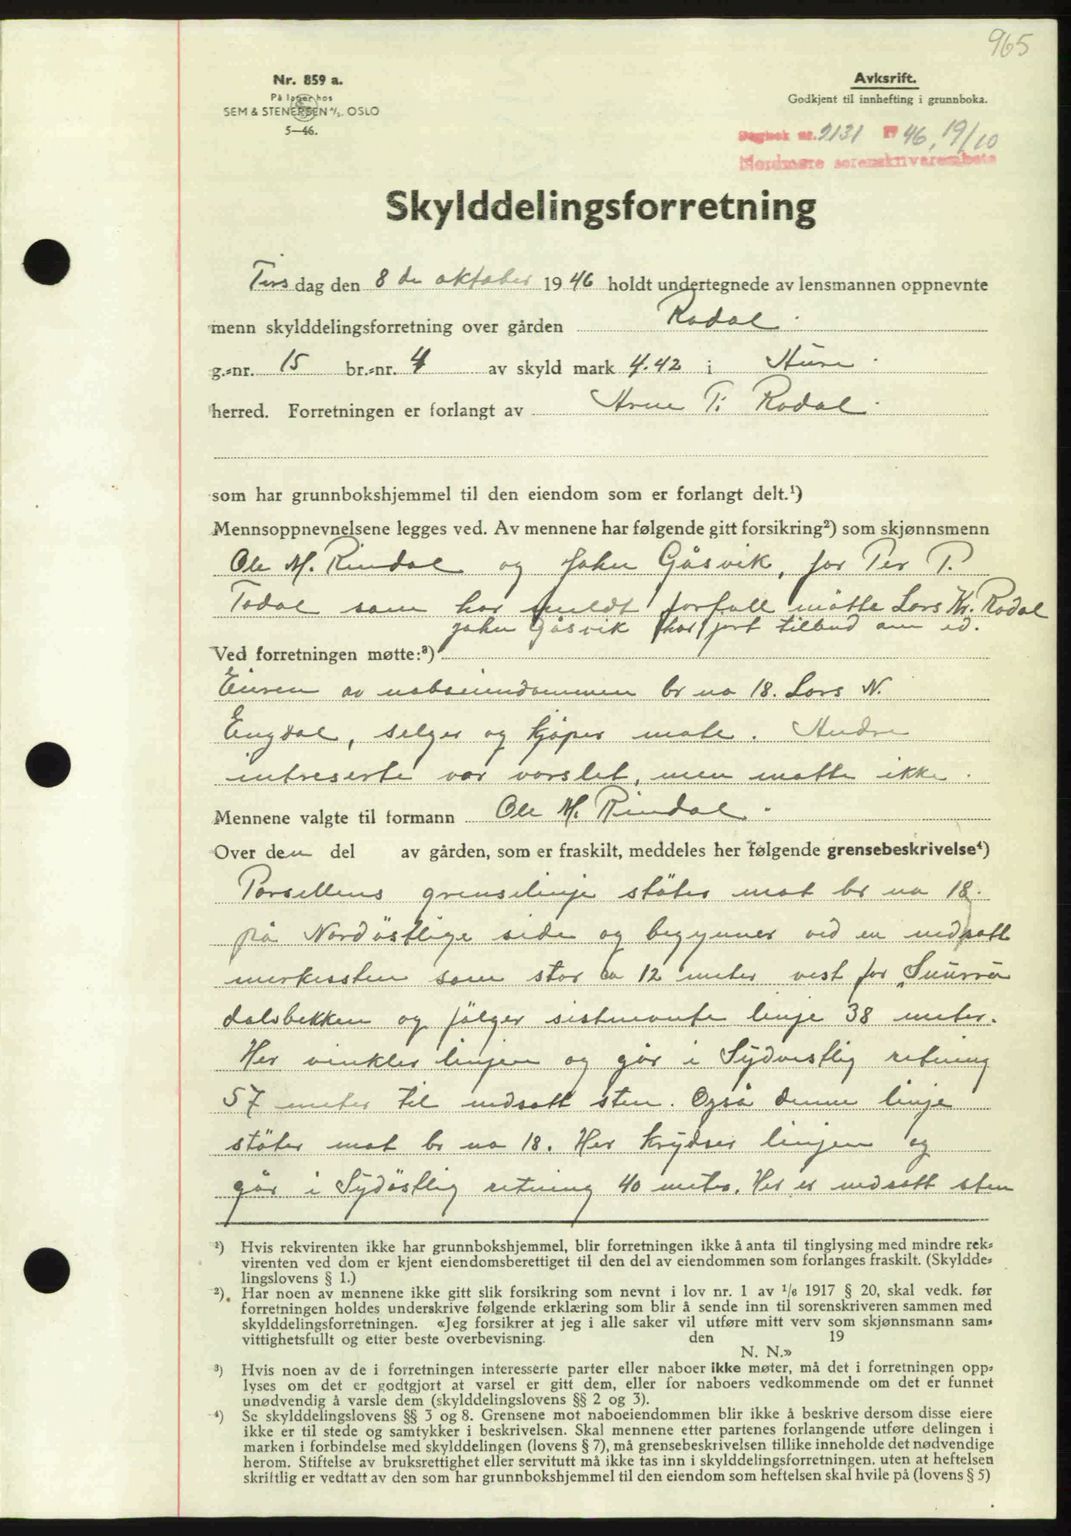 965
Nr. 859 a.
På lager hos
SEM & STENERSEN A/S. OSLO
5—46.
Avksrift.
Godkjent til innhefting i grunnboka.
Dagbok nr. 2131 19 46, 19/10
Nordmøre sorenskriverembete
Skylddelingsforretning
Tirsdag den 8 de oktober 1946 holdt undertegnede av lensmannen oppnevnte
menn skylddelingsforretning over gården Rodal.
g.-nr. 15 br.-nr. 4 av skyld mark 4.42 i Aure.
herred. Forretningen er forlangt av Arne T. Rodal.
som har grunnbokshjemmel til den eiendom som er forlangt delt.¹)
Mennsoppnevnelsene legges ved. Av mennene har følgende gitt forsikring²) som skjønnsmenn
Ole M. Rindal og John Gåsvik, for Per P.
Todal som har meldt forfall møtte Lars Kr. Rodal
John Gåsvik har tilbud om ed.
Ved forretningen møtte:³)
Eieren av naboeiendommen br no 18. Lars N.
Engdal, selger og kjøper møte. Andre
intreserte var varslet, men møtte ikke.
Mennene valgte til formann Ole M. Rindal.
Over den del av gården, som er fraskilt, meddeles her følgende grensebeskrivelse⁴)
Parsellens grenselinje støter mot br no 18.
på Nordöstlige side og begynner ved en nedsatt
merkessten som står ca 12 meter vest for
dalsbekken og følger sistnevnte linje 38 meter.
Her vinkler linjen og går i Sydvestlig retning
57 meter til nedsatt sten. Også denne linje
støter mot br no 18. Her krydser linjen og
går i Sydöstlig retning 40 meter. Her er nedsatt sten
¹) Hvis rekvirenten ikke har grunnbokshjemmel, blir forretningen ikke å anta til tinglysing med mindre rek-
virenten ved dom er kjent eiendomsberettiget til den del av eiendommen som forlanges fraskilt. (Skyldde-
lingslovens § 1.)
²) Har noen av mennene ikke gitt slik forsikring som nevnt i lov nr. 1 av 1/6 1917 § 20, skal vedk. før
forretningen holdes underskrive følgende erklæring som blir å sende inn til sorenskriveren sammen med
skylddelingsforretningen. «Jeg forsikrer at jeg i alle saker vil utføre mitt verv som skjønnsmann sam-
vittighetsfullt og etter beste overbevisning. den 19
N. N.»
³) Hvis noen av de i forretningen interesserte parter eller naboer ikke møter, må det i forretningen opp-
lyses om det er godtgjort at varsel er gitt dem, eller for naboers vedkommende om det er funnet
unødvendig å varsle dem (skylddelingslovens §§ 2 og 3).
⁴) Se skylddelingslovens §§ 3 og 8. Grensene mot naboeiendommen blir ikke å beskrive dersom disse eiere
ikke er til stede og samtykker i beskrivelsen. Skal mennene etter partenes forlangende utføre delingen i
marken i forbindelse med skylddelingen (lovens § 7), må grensebeskrivelsen tillike inneholde det nødvendige
herom. Stiftelse av bruksrettighet eller servitutt må ikke tas inn i skylddelingsforretningen, uten at heftelsen
skriftlig er vedtatt av den som har grunnbokshjemmel til den eiendom som heftelsen skal hvile på (lovens § 5)